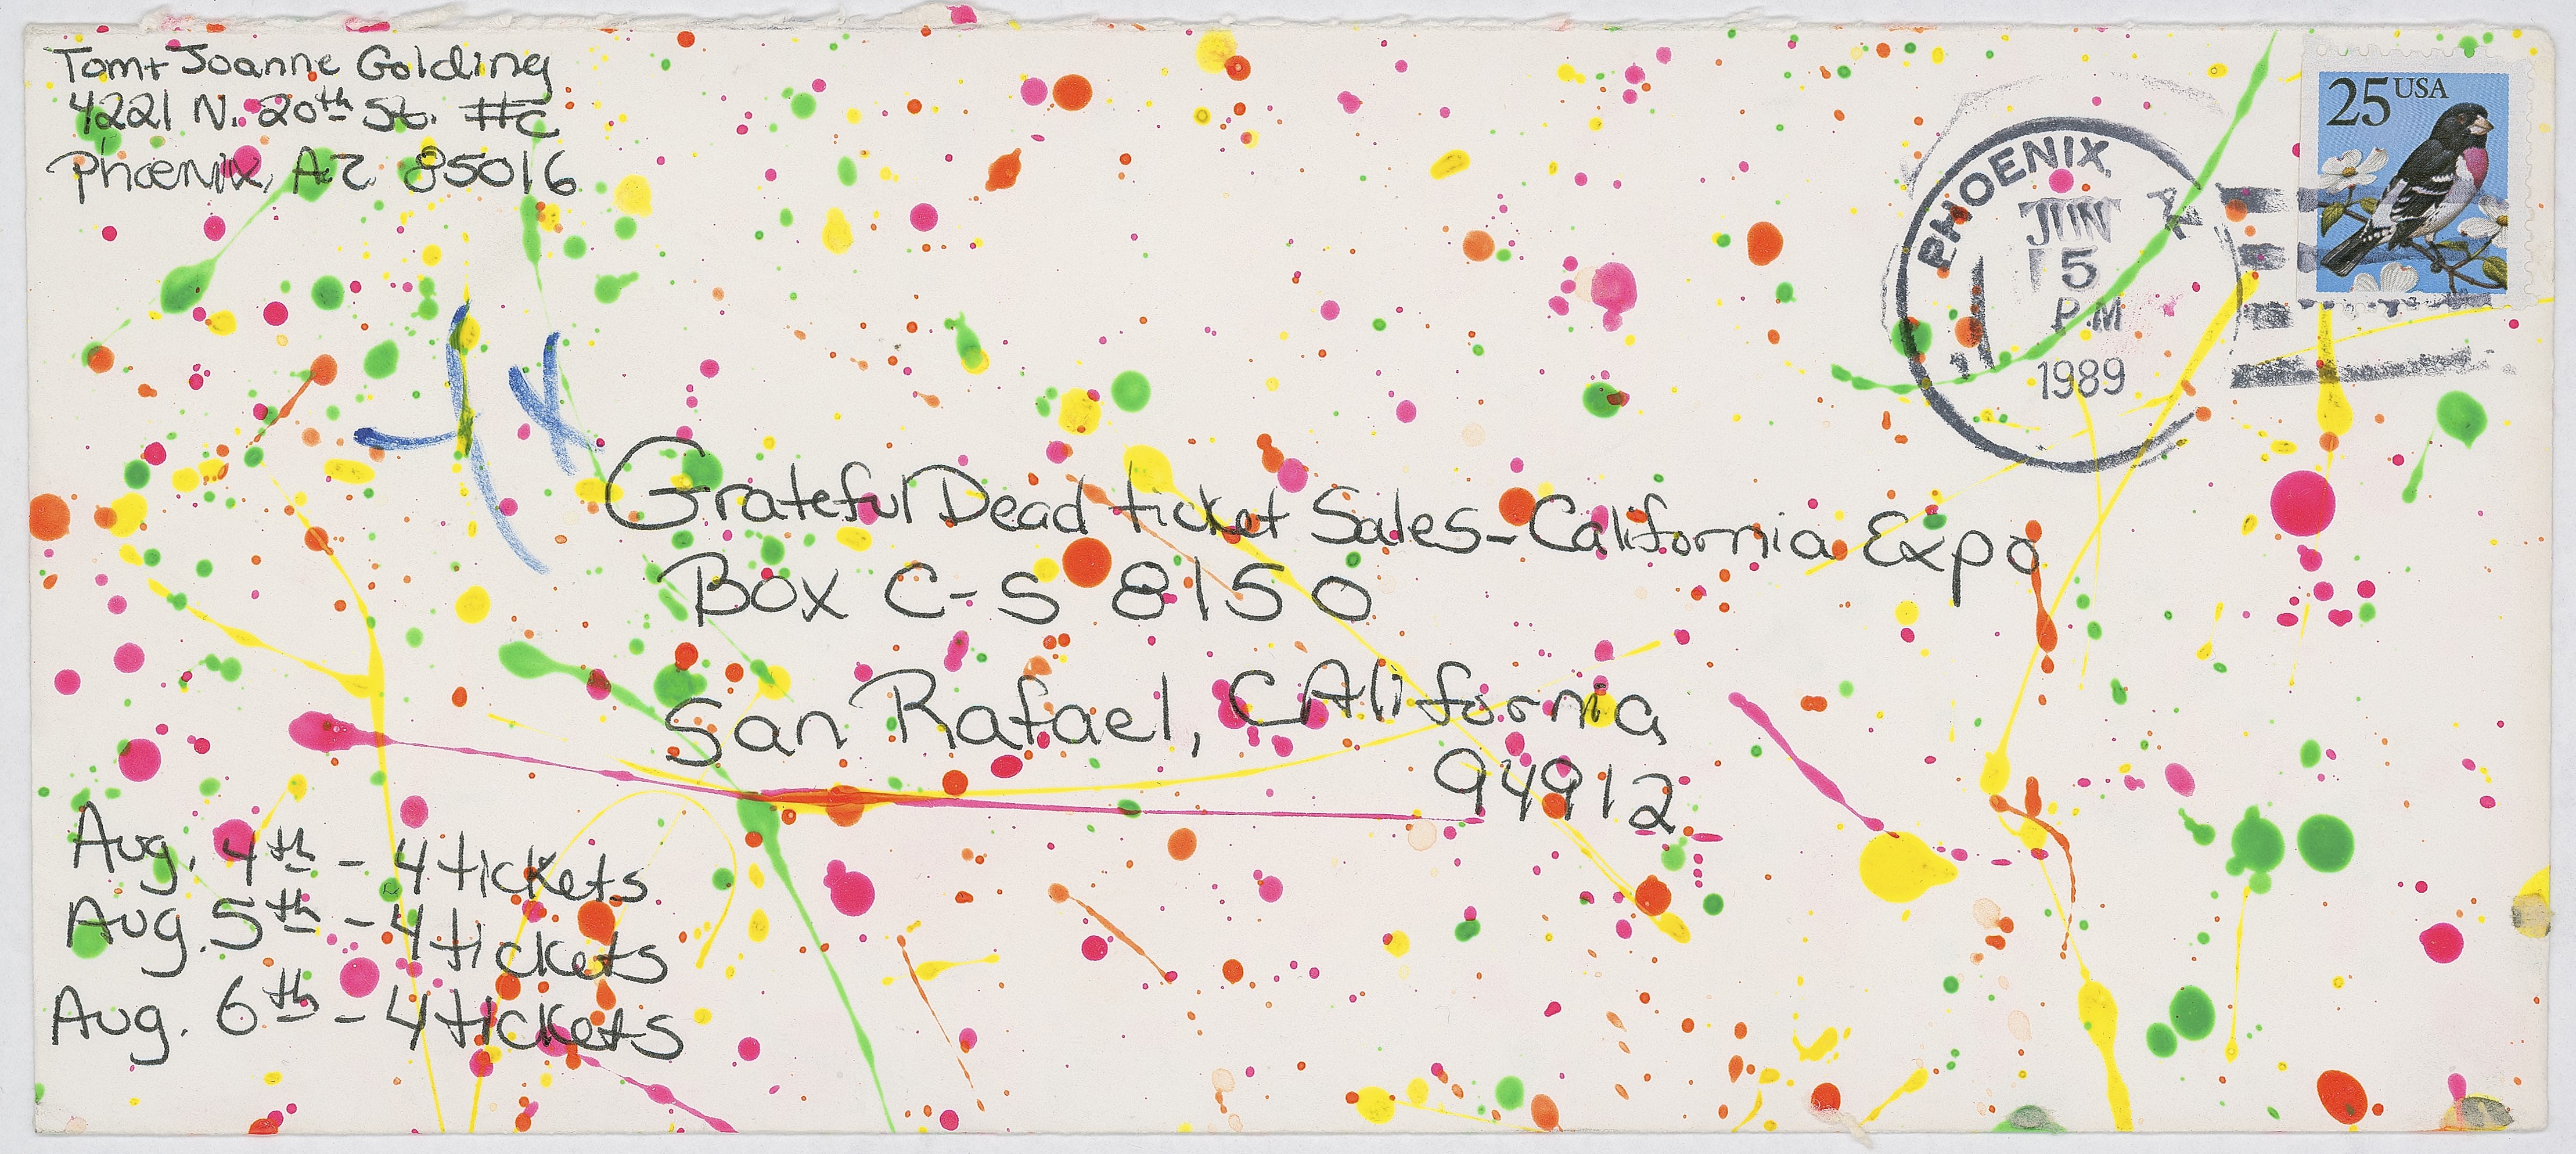 Tom + Joanne Golding
4221 N. 20th St. #C
Phoenix, AZ 85016
25 USA
PHOENIX
JUN
5
PM
1989
4x
Grateful Dead ticket Sales - California Expo
Box C-S 8150
San Rafael, CAlifornia
94912
Aug. 4th - 4 tickets
Aug. 5th - 4 tickets
Aug. 6th - 4 tickets